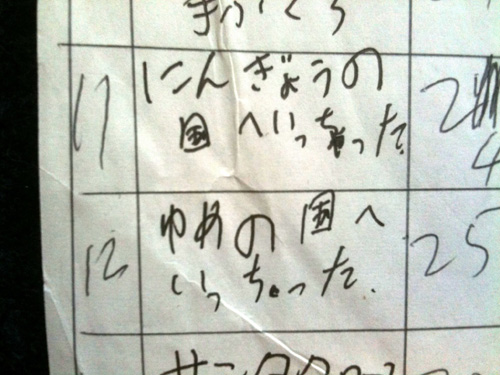 11 にんぎょうの
国へいっちゃった。
4
12 ゆめの国へ 25
いっちゃった.